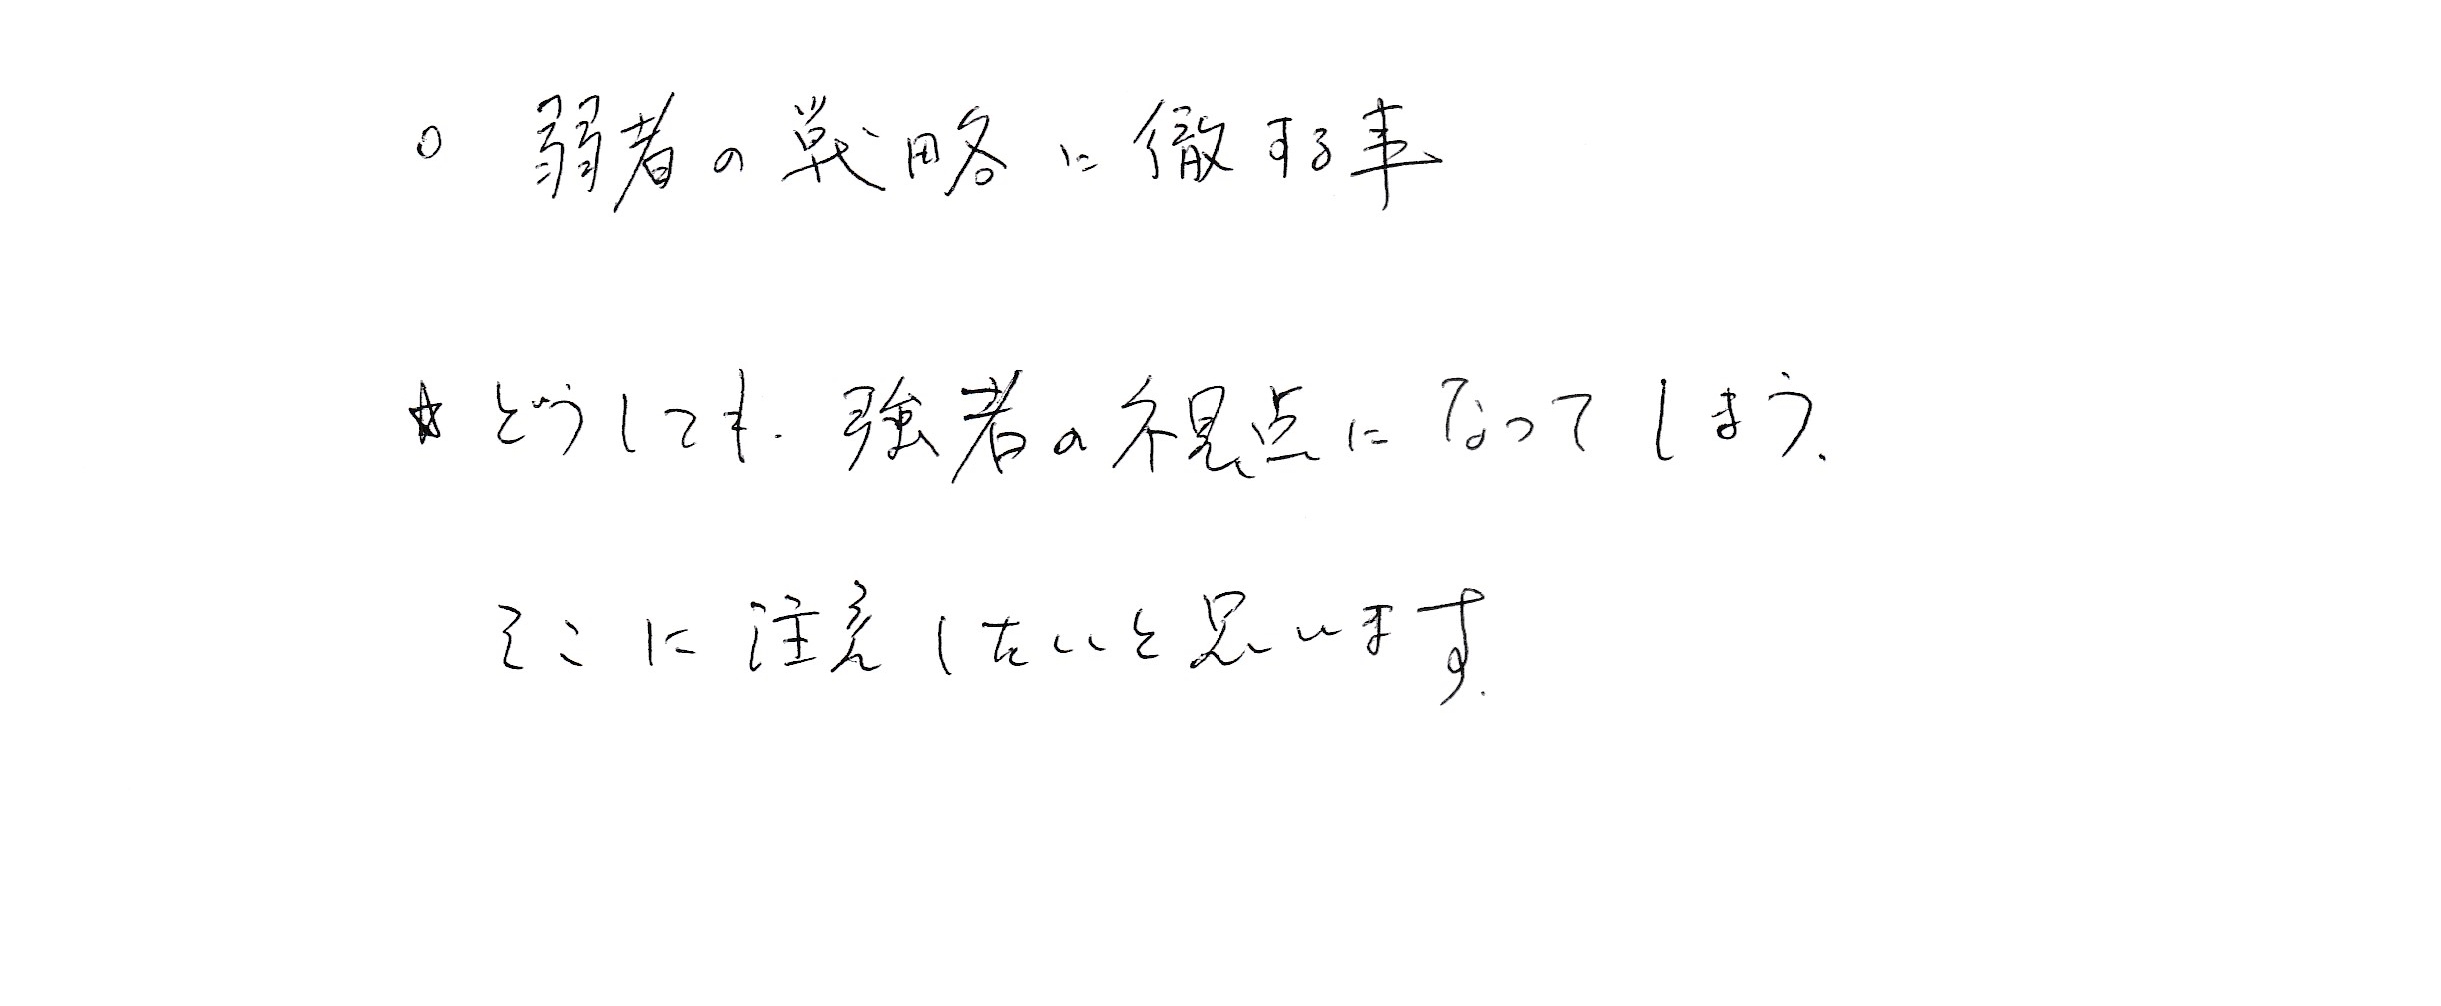 ○ 弱者の戦略に徹する事
☆どうしても、強者の視点になってしまう。
そこに注意したいと思います。